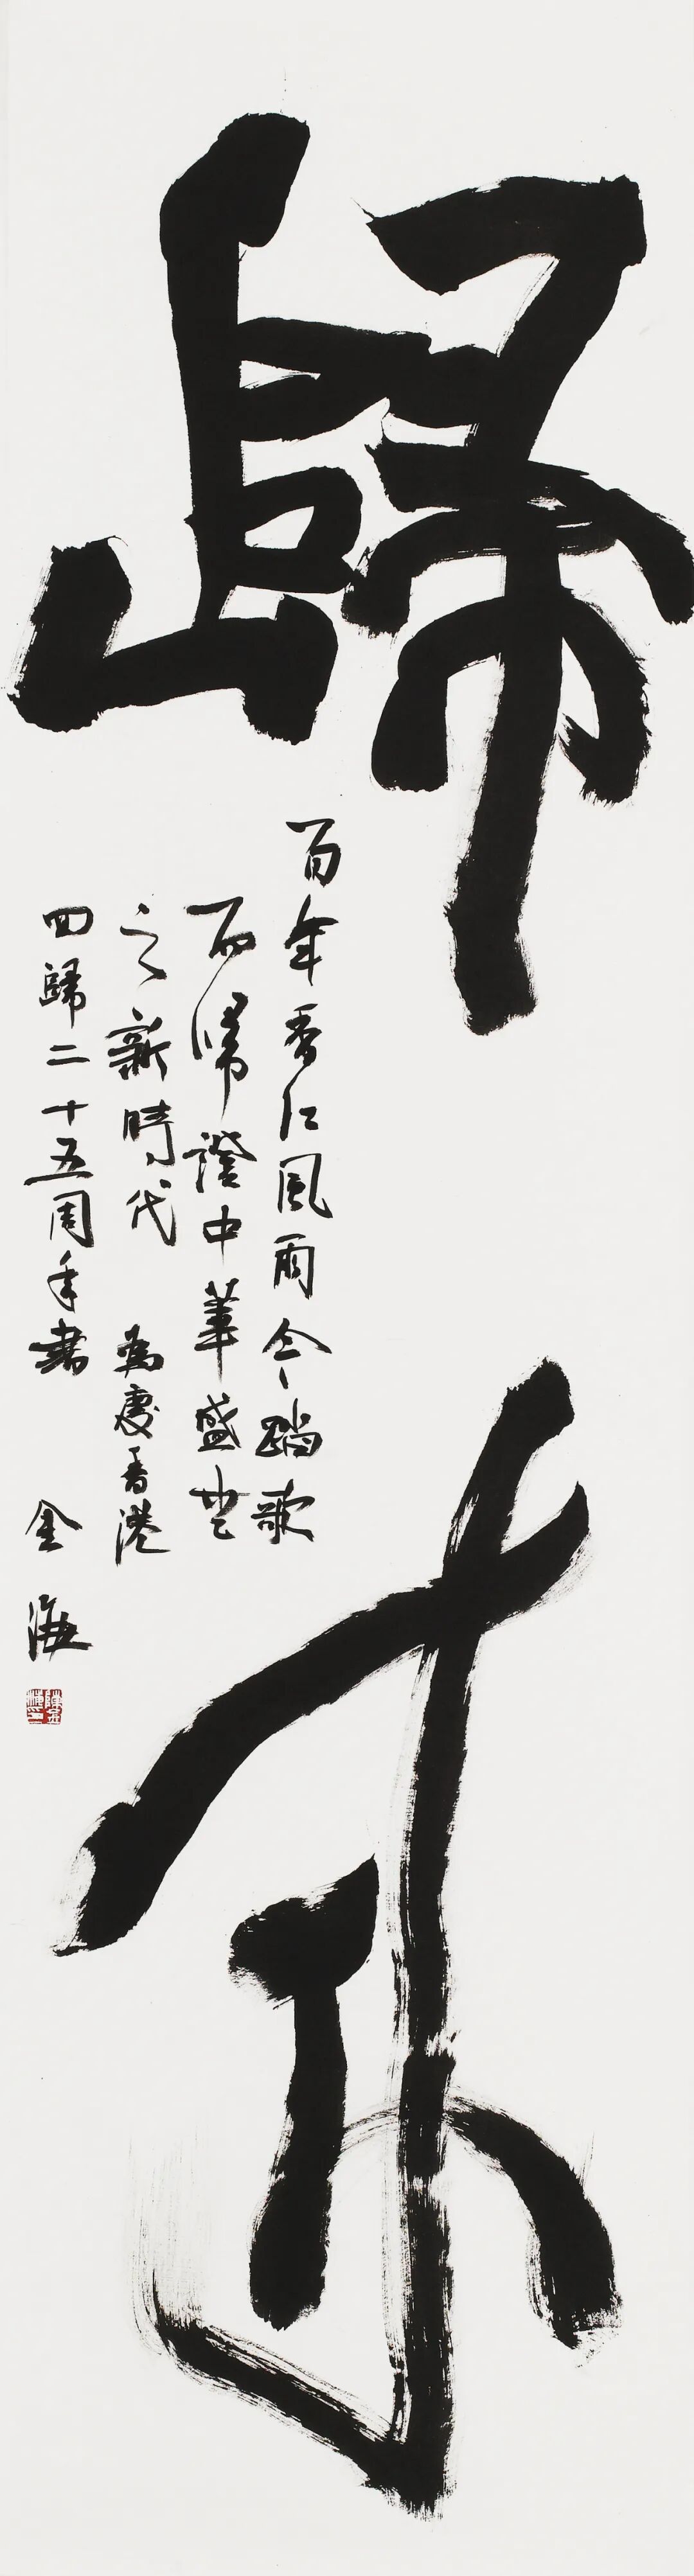 歸來
百年香江風雨今踏歌
而歸證中華盛世
之新時代 為慶香港
回歸二十五周年書 金海